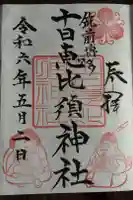 辰拝
筑前博多
十日恵比須神社
令和六年五月二日